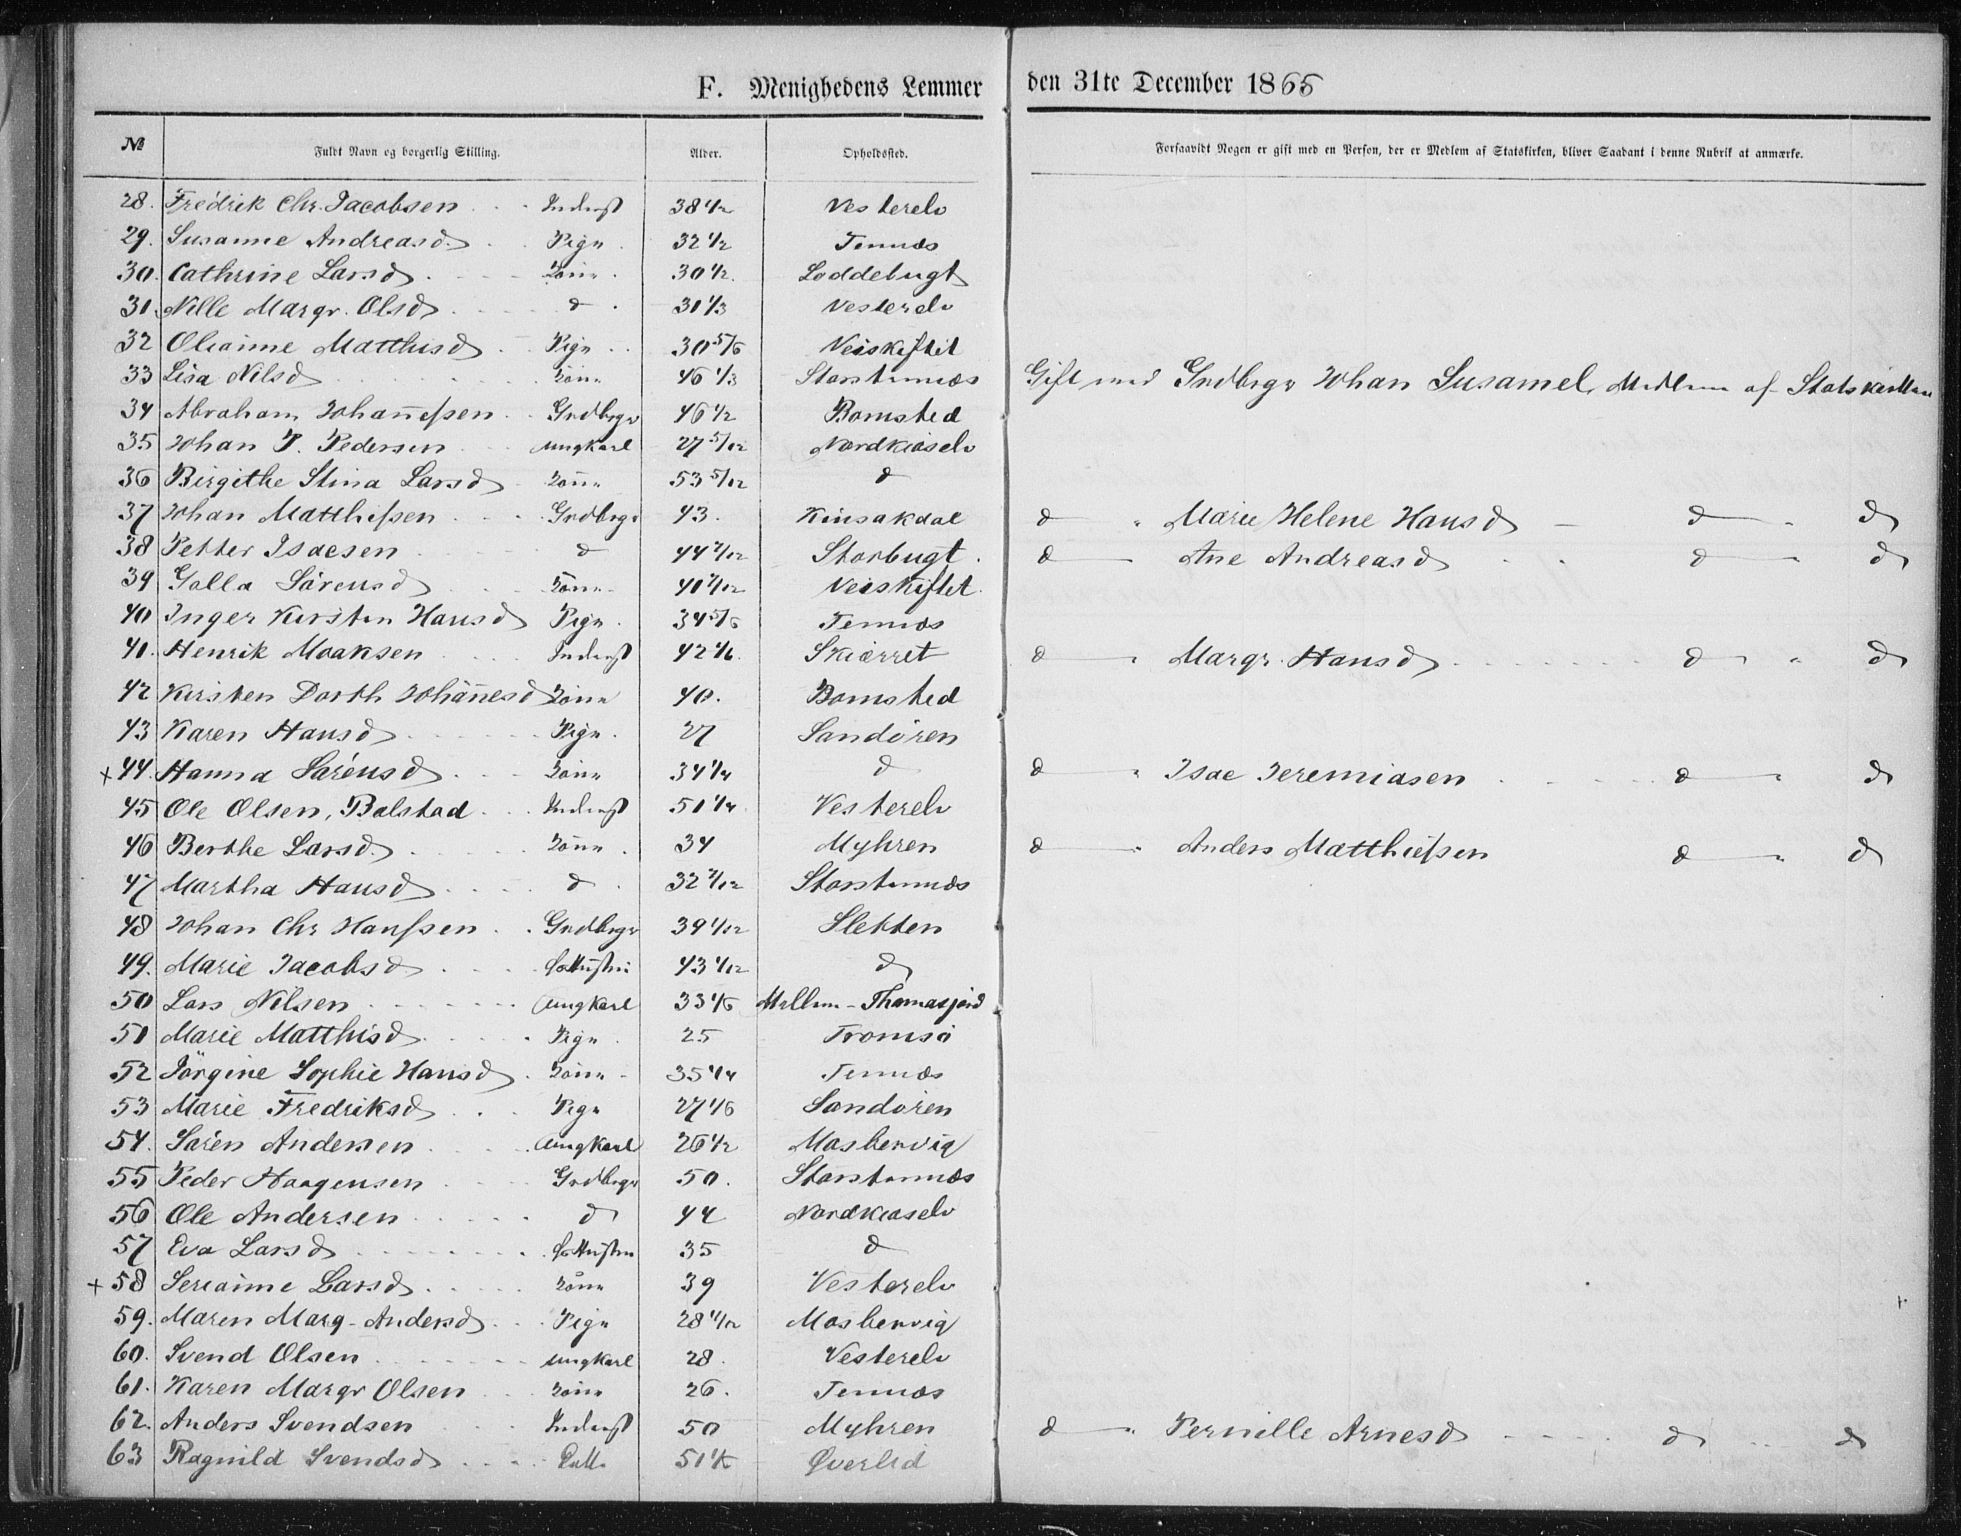 F. Menighedens Lemmer den 31te December 1865
№ Fuldt Navn og borgerlig Stilling. Alder. Opholdssted. Forsaavidt Nogen er gift med en Person, der er Medlem af Statskirken, bliver Saadant i denne Rubrik at anmærke.
28. Fredrik Chr. Jacobsen Inderst 38 1/2 Vesterelv
29. Susanne Andreasd. Pige 32 1/2 Tennæs
30. Cathrine Larsd Kone 30 1/2 Loddebugt
31. Nille Margr. Olsd d 31 1/3 Vesterelv
32 Olianne Matthisd Pige 30 5/6 Veiskiftet
33 Lisa Nilsd Kone 46 1/3 Storstennæs Gift med Grdbrgr Johan Susamel, Medlem af Statskirken
34 Abraham Johannesen Grdbrgr 46 1/2 Bomsted
35 Johan P. Pedersen Ungkarl 27 5/12 Nordkioselv
36 Birgithe Stina Larsd Kone 53 5/12 d
37 Johan Matthisen Grdbrgr 43. Kinsakdal d " Marie Helene Hansd d " d
38 Petter Isacsen d 44 7/12 Storbugt. d Ane Andreasd d " d
39 Golla Sörensd Kone 41 7/12 Veiskiftet.
40 Inger Kirsten Hansd Pige 34 5/6 Tennæs
41. Henrik Moaksen Inderst 42 1/6 Skiærret d " Margr. Hansd d " d
42 Kirsten Dorth Johannesd Kone 40. Bomsted
43 Karen Hansd Pige 27 Sandören
+ 44. Hanna Sörensd Kone 34 1/4 d d " Isac Jeremiasen d " d
45 Ole Olsen, Bolstad Inderst 51 1/4 Vesterelv
46 Berthe Larsd. Kone 34 Myhren d " Anders Matthiesen d " d
47 Martha Hansd d 32 7/12 Storstennæs
48 Johan Chr Hansen Grdbrgr 39 1/12 Sletten
49. Marie Jacobsd 43 1/12 d
50 Lars Nilsen Ungkarl 33 1/6 Mellem-Thomasjord
51 Marie Matthisd Pige 25 Tromsö
52 Jörgine Sophie Hansd Kone 35 1/4 Tennæs
53 Marie Fredriksd Pige 27 1/6 Sandören
54. Sören Andersen Ungkarl 26 1/2 Mosbervig
55 Peder Haagensen Grdbrgr 50. Storstennæs
56 Ole Andersen d 44 Nordkioselv
57 Eva Larsd 35 d
+ 58 Serianne Larsd Kone 39 Vesterelv
59. Maren Marg. Andersd Pige 28 11/12 Mosbervig
60. Svend Olsen Ungkarl 28. Vesterelv
61. Karen Margr Olsen Kone 26. Tennæs
62. Anders Svendsen Inderst 50 Myhren d " Pernille Arnesd d " d
63 Ragnild Svendsd Øverlid